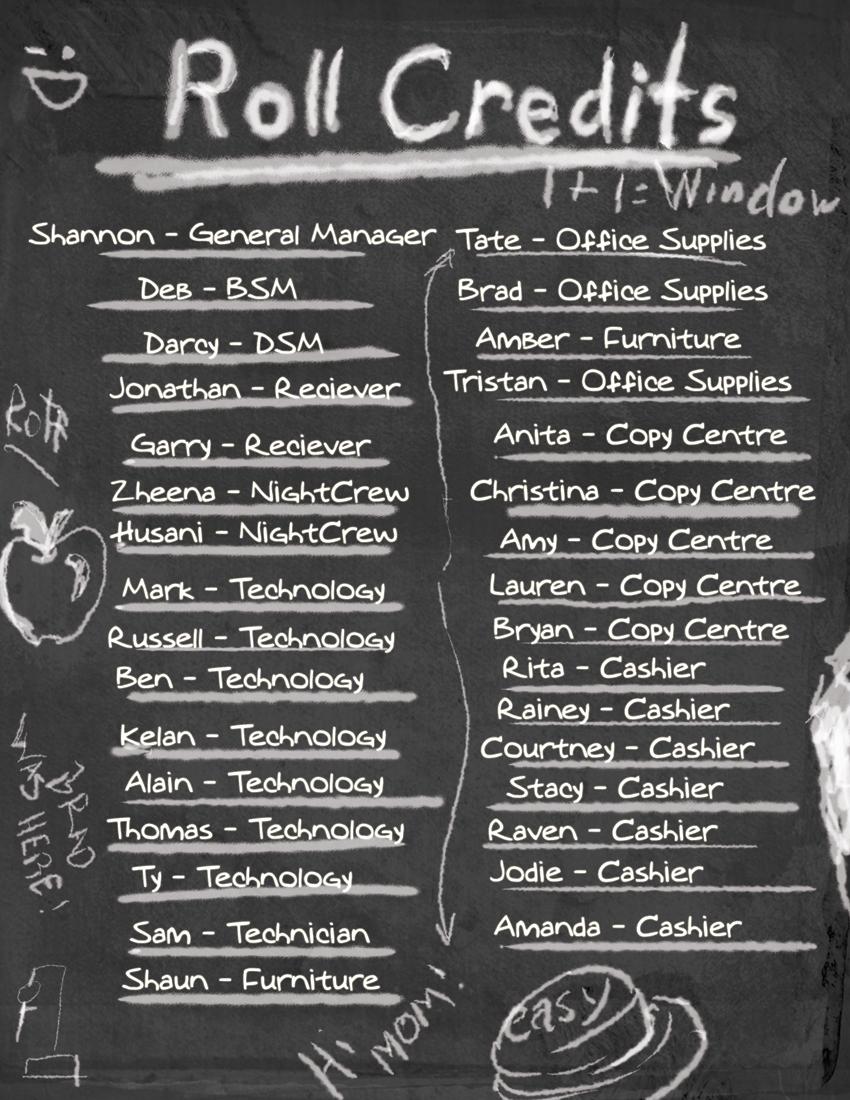 Roll Credits
1 + 1 = Window
Shannon - General Manager
Deb - BSM
Darcy - DSM
Jonathan - Reciever
Garry - Reciever
Zheena - NightCrew
Husani - NightCrew
Mark - Technology
Russell - Technology
Ben - Technology
Kelan - Technology
Alain - Technology
Thomas - Technology
Ty - Technology
Sam - Technician
Shaun - Furniture
Tate - Office Supplies
Brad - Office Supplies
Amber - Furniture
Tristan - Office Supplies
Anita - Copy Centre
Christina - Copy Centre
Amy - Copy Centre
Lauren - Copy Centre
Bryan - Copy Centre
Rita - Cashier
Rainey - Cashier
Courtney - Cashier
Stacy - Cashier
Raven - Cashier
Jodie - Cashier
Amanda - Cashier
BRAD
WAS HERE!
Hi
MOM!
easy